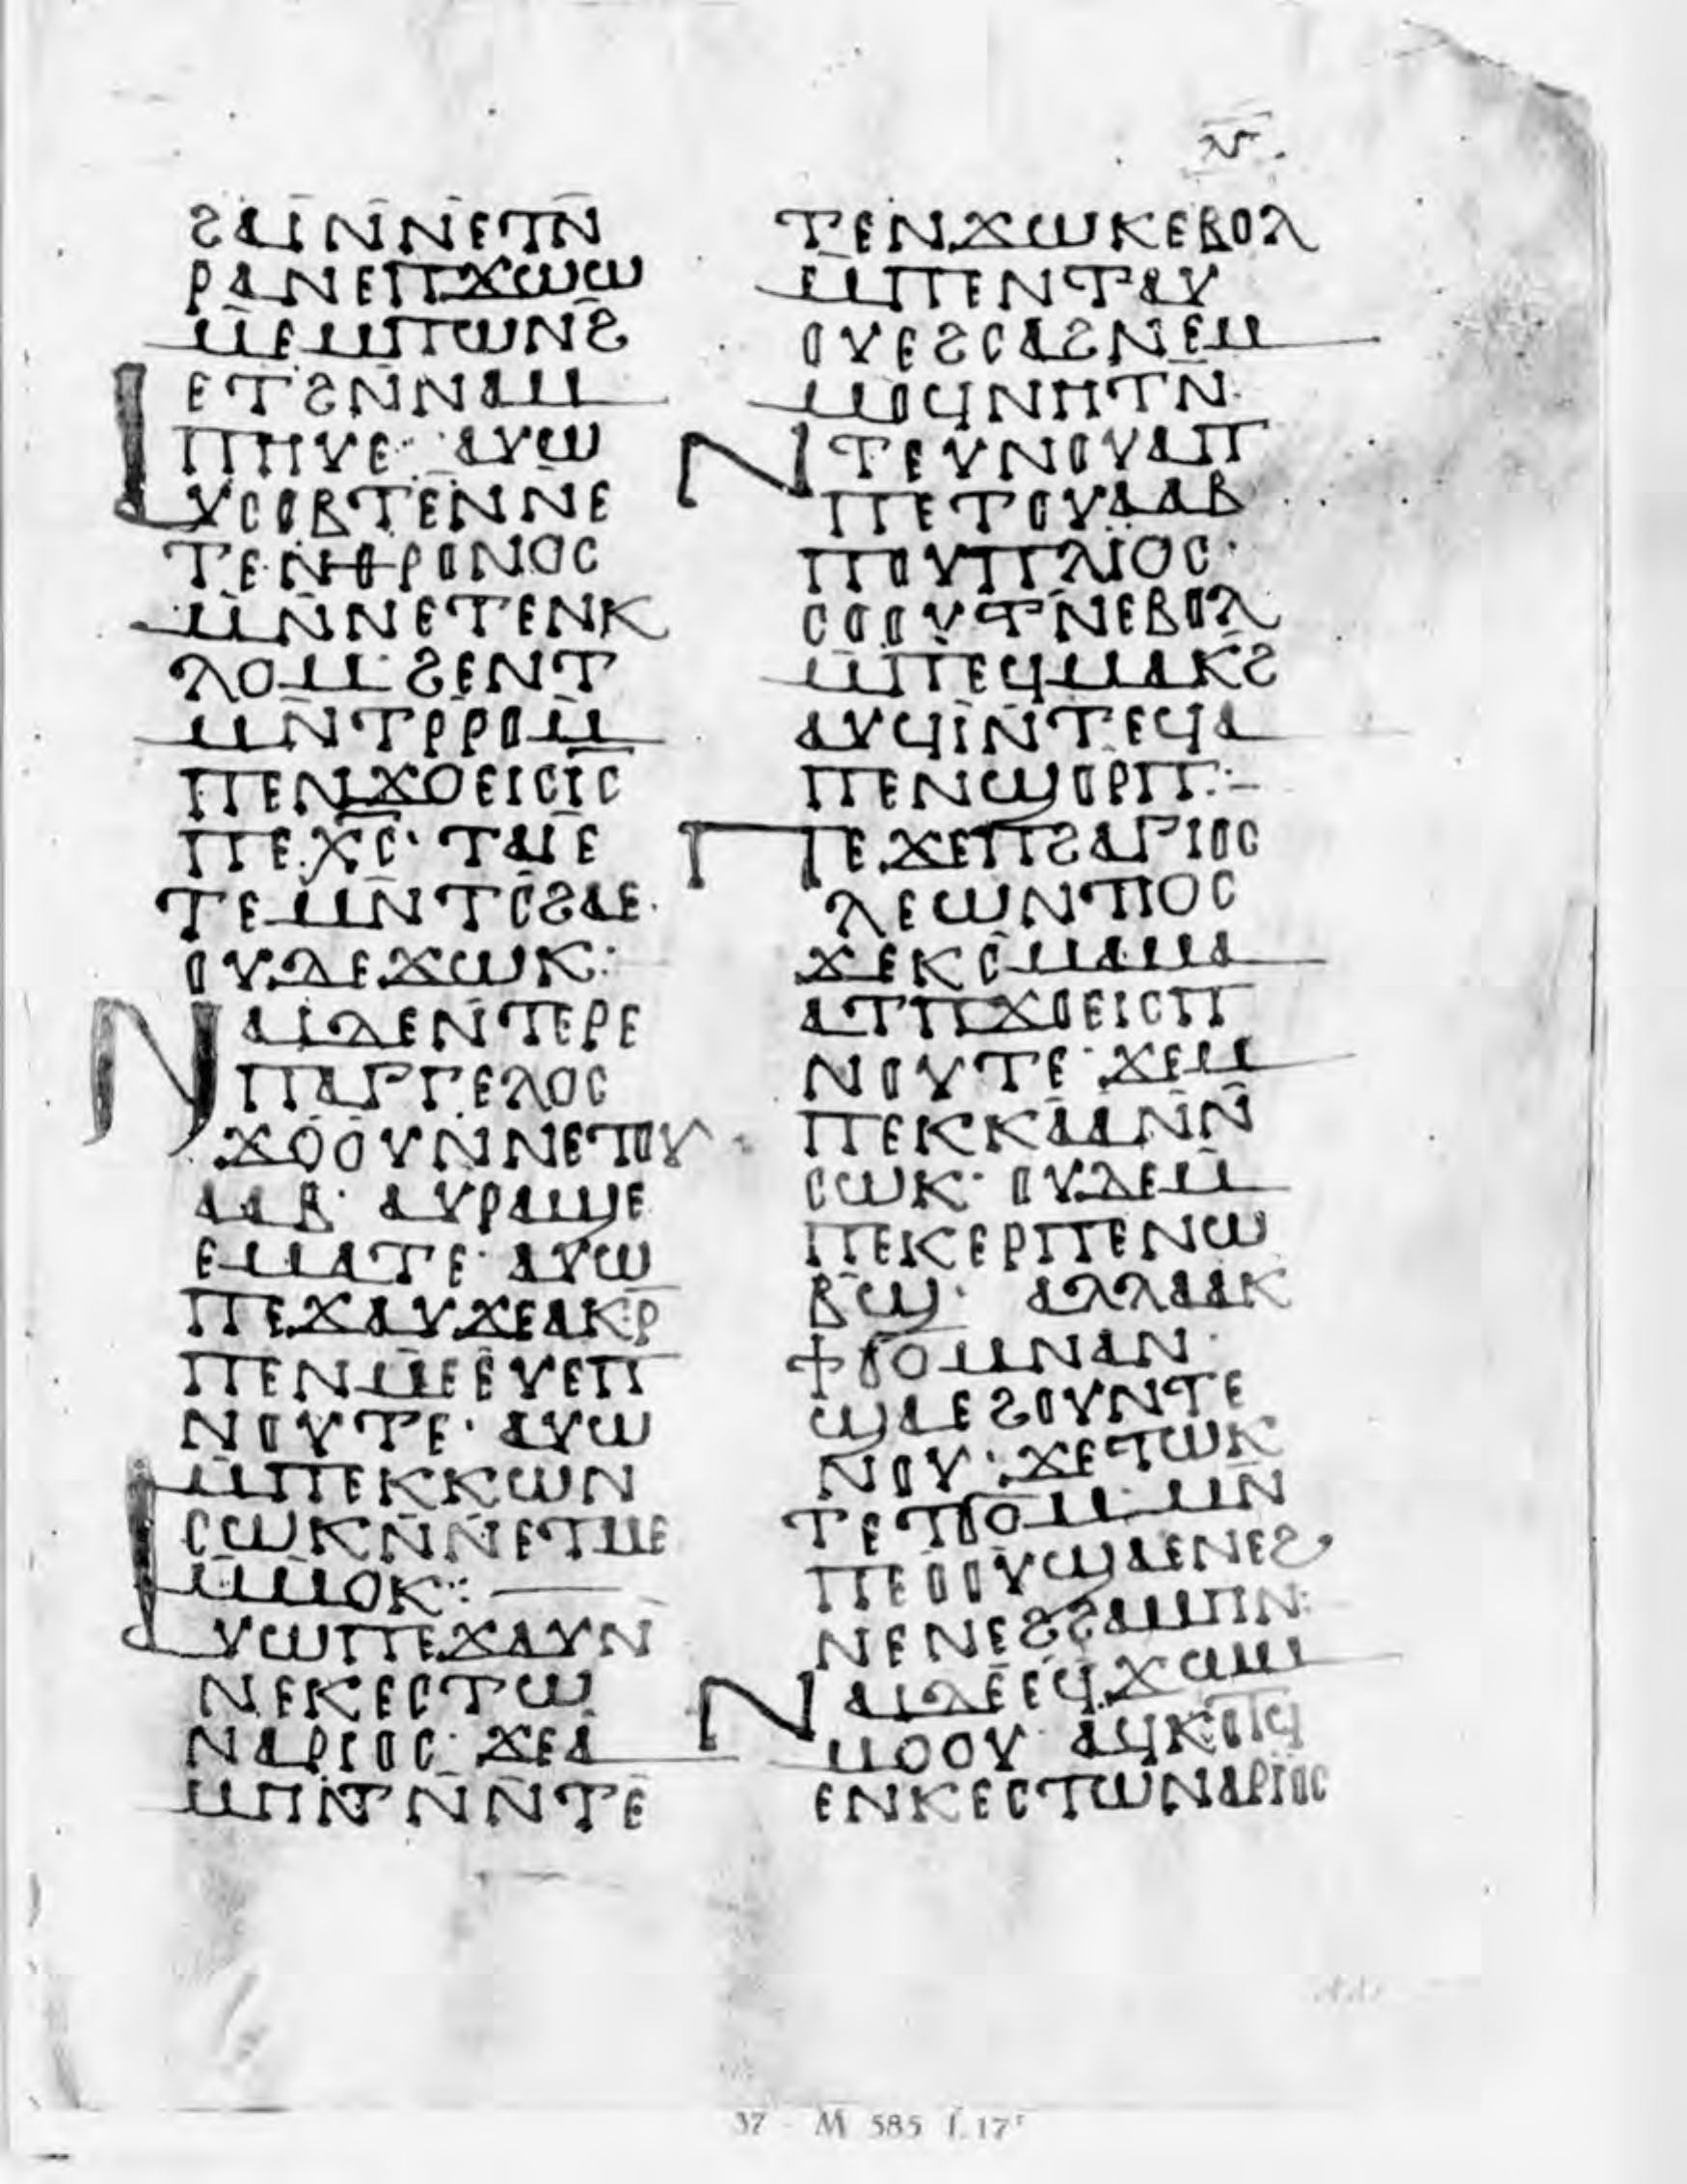 ⲗ̅ⲅ̅
ϩⲁⲓ̈ⲛ̄ⲛⲉⲧⲛ̄
ⲣⲁⲛⲉⲡϫⲱⲱ
ⲙⲉⲙⲡⲱⲛϩ̄
ⲉⲧϩⲛ̄ⲛⲁⲙ
ⲡⲏⲩⲉ· ⲁⲩⲱ
ⲁⲩⲥⲟⲃⲧⲉⲛ̄ⲛⲉ
ⲧⲉⲛⲑⲣⲟⲛⲟⲥ
ⲙⲛ̄ⲛⲉⲧⲉⲛⲕ
ⲗⲟⲙ· ϩⲉⲛⲧ
ⲙⲛ̄ⲧⲣ̄ⲣⲟⲙ̄
ⲡⲉⲛϫⲟⲉⲓⲥⲓ̅ⲥ̅
ⲡⲉⲭ̅ⲥ̅· ⲧⲁⲓ̈ⲉ
ⲧⲉⲙⲛ̄ⲧⲥϩⲁⲉ·
ⲟⲩⲇⲉϫⲱⲕ:
ⲛⲁⲓ̈ⲇⲉⲛ̄ⲧⲉⲣⲉ
ⲡⲁⲅⲅⲉⲗⲟⲥ
ϫⲟⲟⲩⲛ̄ⲛⲉⲧⲟⲩ
ⲁⲁⲃ· ⲁⲩⲣⲁϣⲉ
ⲉⲙⲁⲧⲉ· ⲁⲩⲱ
ⲡⲉϫⲁⲩϫⲉⲁⲕⲣ̄
ⲡⲉⲛⲙⲉⲉⲩⲉⲡ
ⲛⲟⲩⲧⲉ· ⲁⲩⲱ
ⲙ̄ⲡⲉⲕⲕⲱⲛ
ⲥⲱⲕⲛ̄ⲛ̄ⲉⲧⲙⲉ
ⲙ̄ⲙⲟⲕ:
ⲁⲩⲱⲡⲉϫⲁⲩⲛ
ⲛⲉⲕⲉⲥⲧⲱ
ⲛⲁⲣⲓⲟⲥ· ϫⲉⲁ
ⲙⲏⲓⲧⲛ̄ⲛ̄ⲧⲉ
ⲧⲉⲛϫⲱⲕⲉⲃⲟⲗ
ⲉⲙ̄ⲡⲉⲛⲧⲁⲩ
ⲟⲩⲉϩⲥⲁϩⲛⲉⲙ
ⲙⲟϥⲛⲏⲧⲛ̄·
ⲛⲧⲉⲩⲛⲟⲩⲁⲡ
ⲡⲉⲧⲟⲩⲁⲁⲃ
ⲡⲟⲩⲡⲗⲓⲟⲥ·
ⲥⲟⲟⲩⲧⲛ̄ⲉⲃⲟⲗ
ⲙ̄ⲡⲉϥⲙⲁⲕϩ
ⲁⲩϥⲓⲛ̄ⲧⲉϥⲁ
ⲡⲉⲛϣⲟⲣⲡ:–
ⲡⲉϫⲉⲡϩⲁⲅⲓⲟⲥ
ⲗⲉⲱⲛⲧⲓⲟⲥ
ϫⲉⲕⲥ̄ⲙⲁⲙⲁ
ⲁⲧⲡϫⲟⲉⲓⲥⲡ
ⲛⲟⲩⲧⲉ· ϫⲉⲙ
ⲡⲉⲕⲕⲁⲁⲛ̄ⲛ̄
ⲥⲱⲕ· ⲟⲩⲇⲉⲙ̄
ⲡⲉⲕⲉⲣⲡⲉⲛⲱ
ⲃ̄ϣ· ⲁⲗⲗⲁⲁⲕ
ϯϭⲟⲙⲛⲁⲛ·
ϣⲁⲉϩⲟⲩⲛⲧⲉ
ⲛⲟⲩ: ϫⲉⲧⲱⲕ
ⲧⲉⲧϭⲟⲙ· ⲙⲛ̄
ⲡⲉⲟⲟⲩϣⲁⲉⲛⲉϩ
ⲛⲉⲛⲉϩϩⲁⲙⲏⲛ:
ⲛⲁⲓ̈ⲇⲉⲉϥϫⲱⲙ
ⲙⲟⲟⲩ· ⲁϥⲕⲟⲧϥ̄
ⲉⲛⲕⲉⲥⲧⲱⲛⲁⲣⲓⲟⲥ
37 - M 585 f. 17ʳ